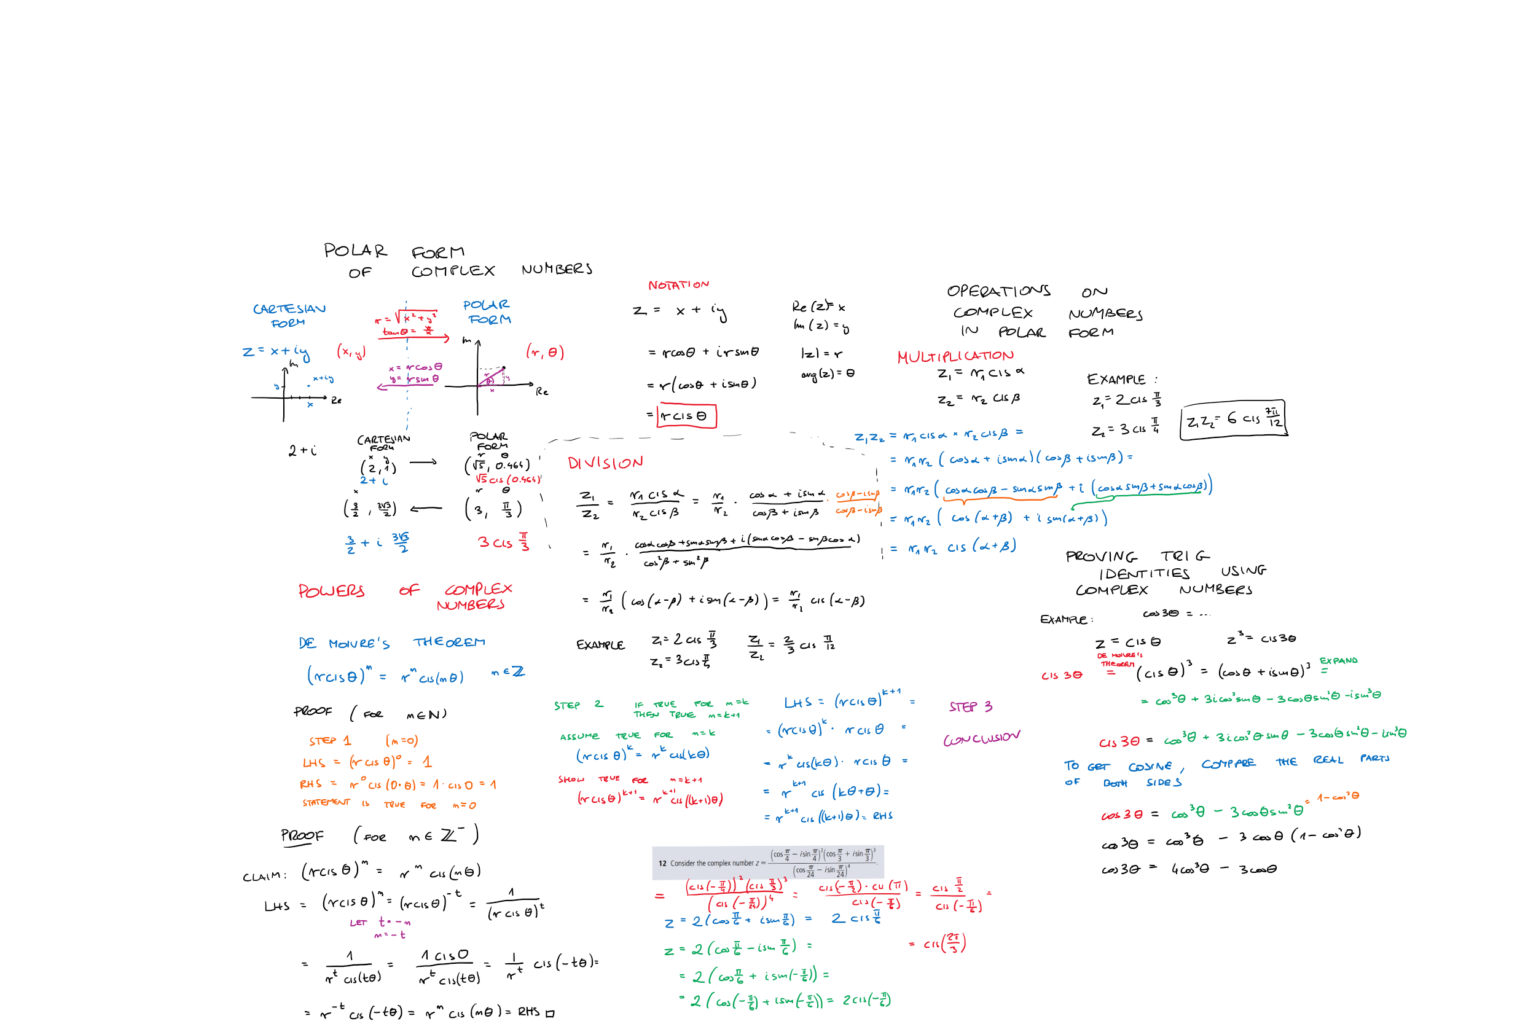 POLAR FORM
OF COMPLEX NUMBERS
CARTESIAN
FORM
r = √(x² + y²)
tanθ = y/x
POLAR
FORM
z = x+iy
(x, y)
x = r cosθ
y = r sinθ
(r, θ)
Im
Re
x+iy
y
x
Im
Re
r
θ
y
x
2+i
CARTESIAN
FORM
POLAR
FORM
x y
(2, 1) → (√5, 0.464)
r θ
2+i
√5 cis (0.464)
x
(3/2, 3√3/2) ← (3, π/3)
r θ
3/2 + i 3√3/2
3 cis π/3
NOTATION
z = x + iy
= r cosθ + i r sinθ
= r (cosθ + i sinθ)
= r cis θ
Re(z) = x
Im(z) = y
|z| = r
arg(z) = θ
OPERATIONS ON
COMPLEX NUMBERS
IN POLAR FORM
MULTIPLICATION
z₁ = r₁ cis α
z₂ = r₂ cis β
EXAMPLE:
z₁ = 2 cis π/3
z₂ = 3 cis π/4
z₁z₂ = 6 cis 7π/12
z₁z₂ = r₁ cis α · r₂ cis β =
= r₁r₂ (cosα + i sinα)(cosβ + i sinβ) =
= r₁r₂ (cosα cosβ − sinα sinβ + i (cosα sinβ + sinα cosβ))
= r₁r₂ (cos(α+β) + i sin(α+β))
= r₁r₂ cis (α+β)
DIVISION
z₁/z₂ = r₁ cis α / r₂ cis β = r₁/r₂ · (cosα + i sinα)/(cosβ + i sinβ) · (cosβ − i sinβ)/(cosβ − i sinβ)
= r₁/r₂ · (cosα cosβ + sinα sinβ + i (sinα cosβ − sinβ cosα))/(cos²β + sin²β)
= r₁/r₂ (cos(α−β) + i sin(α−β)) = r₁/r₂ cis (α−β)
EXAMPLE
z₁ = 2 cis π/3
z₂ = 3 cis π/4
z₁/z₂ = 2/3 cis π/12
POWERS OF COMPLEX
NUMBERS
DE MOIVRE'S THEOREM
(r cis θ)ⁿ = rⁿ cis (nθ) n ∈ ℤ
PROOF (FOR n ∈ ℕ)
STEP 1 (n=0)
LHS = (r cis θ)⁰ = 1
RHS = r⁰ cis (0·θ) = 1 · cis 0 = 1
STATEMENT IS TRUE FOR n=0
STEP 2 IF TRUE FOR n=k
THEN TRUE n=k+1
ASSUME TRUE FOR n=k
(r cis θ)ᵏ = rᵏ cis (kθ)
SHOW TRUE FOR n=k+1
(r cis θ)ᵏ⁺¹ = rᵏ⁺¹ cis ((k+1)θ)
LHS = (r cis θ)ᵏ⁺¹ =
= (r cis θ)ᵏ · r cis θ =
= rᵏ cis (kθ) · r cis θ =
= rᵏ⁺¹ cis (kθ+θ) =
= rᵏ⁺¹ cis ((k+1)θ) = RHS
STEP 3
CONCLUSION
PROOF (FOR n ∈ ℤ⁻)
CLAIM: (r cis θ)ⁿ = rⁿ cis (nθ)
LHS = (r cis θ)ⁿ = (r cis θ)⁻ᵗ = 1/(r cis θ)ᵗ
LET t = −n
n = −t
= 1/(rᵗ cis (tθ)) = 1 cis 0/(rᵗ cis (tθ)) = 1/rᵗ cis (−tθ) =
= r⁻ᵗ cis (−tθ) = rⁿ cis (nθ) = RHS □
12 Consider the complex number z = (cos π/4 − i sin π/4)² (cos π/3 + i sin π/3)³ / (cos π/24 − i sin π/24)⁴.
= (cis(−π/4))² (cis π/3)³ / (cis(−π/24))⁴ = cis(−π/2) · cis(π) / cis(−π/6) = cis π/2 / cis(−π/6) =
= cis(2π/3)
z = 2 (cos π/6 + i sin π/6) = 2 cis π/6
z = 2 (cos π/6 − i sin π/6) =
= 2 (cos π/6 + i sin(−π/6)) =
= 2 (cos(−π/6) + i sin(−π/6)) = 2 cis(−π/6)
PROVING TRIG
IDENTITIES USING
COMPLEX NUMBERS
EXAMPLE: cos3θ = ...
z = cis θ z³ = cis 3θ
DE MOIVRE'S
THEOREM
cis 3θ = (cis θ)³ = (cosθ + i sinθ)³ =
EXPAND
= cos³θ + 3i cos²θ sinθ − 3cosθ sin²θ − i sin³θ
cis 3θ = cos³θ + 3i cos²θ sinθ − 3cosθ sin²θ − i sin³θ
TO GET COSINE, COMPARE THE REAL PARTS
OF BOTH SIDES
cos 3θ = cos³θ − 3cosθ sin²θ
= 1−cos²θ
cos3θ = cos³θ − 3 cosθ (1 − cos²θ)
cos3θ = 4cos³θ − 3cosθ